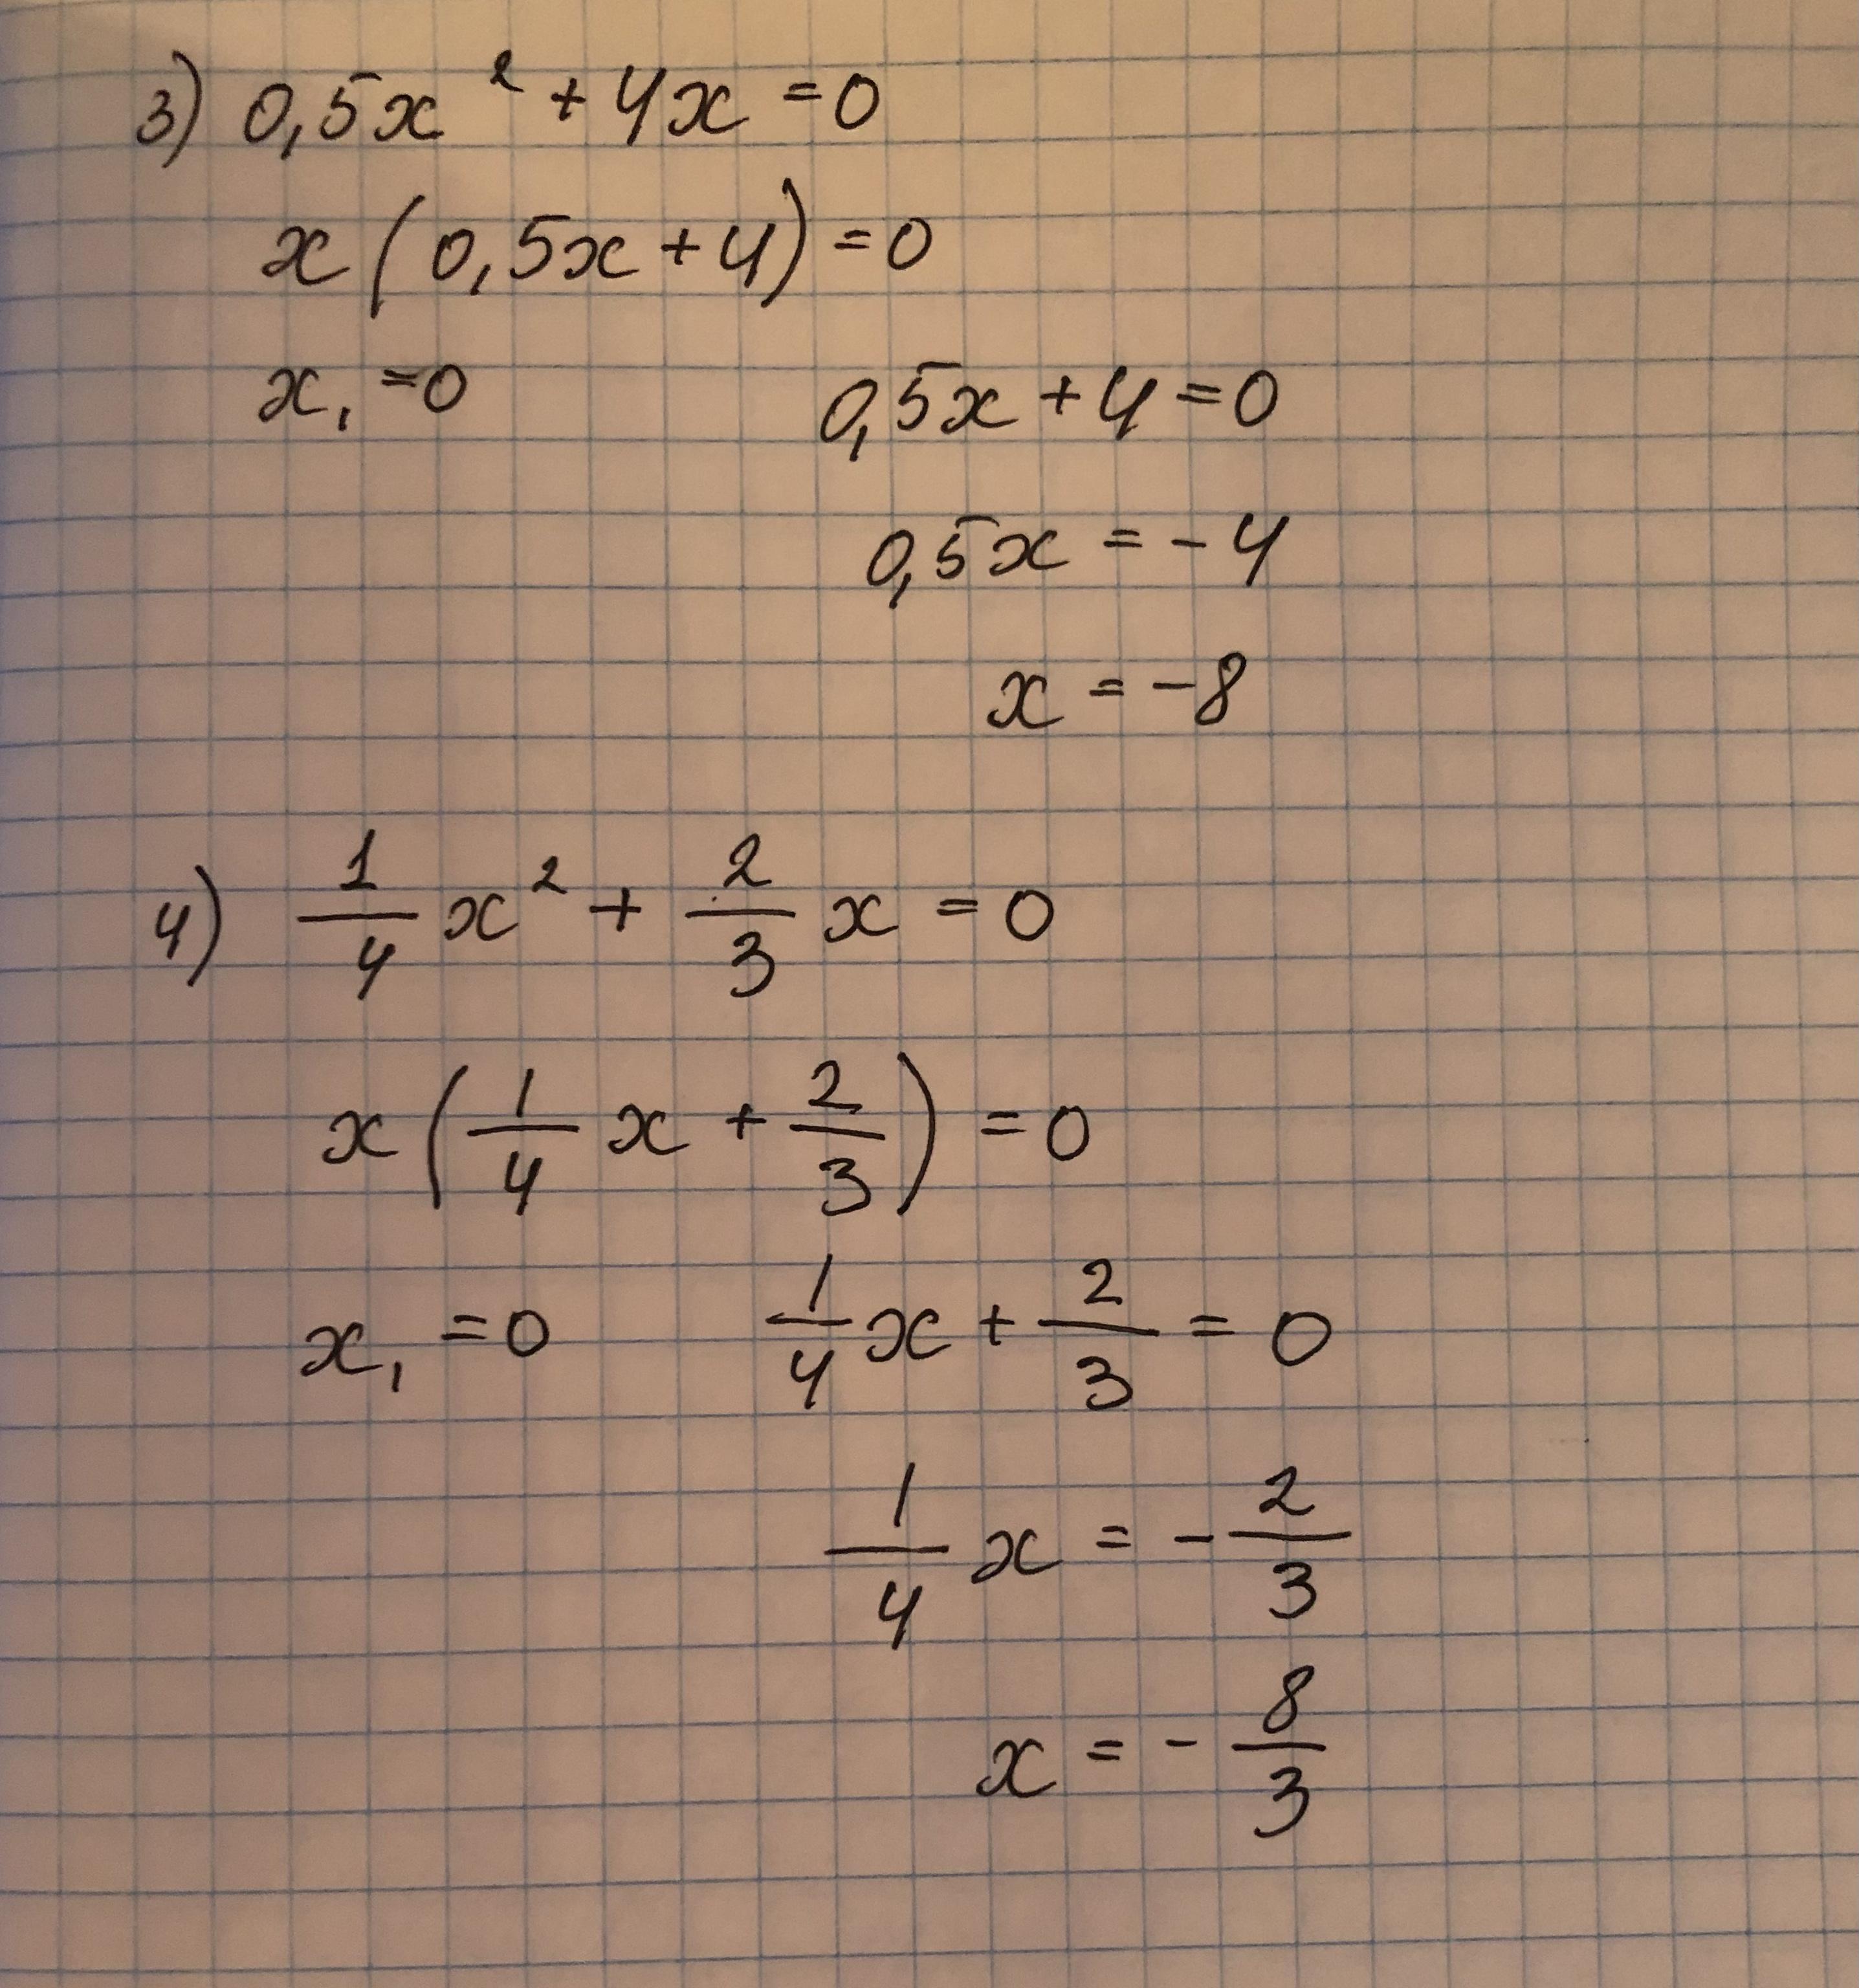 3) 0,5x² + 4x = 0
x(0,5x + 4) = 0
x₁ = 0    0,5x + 4 = 0
0,5x = -4
x = -8
4) 1/4 x² + 2/3 x = 0
x(1/4 x + 2/3) = 0
x₁ = 0    1/4 x + 2/3 = 0
1/4 x = - 2/3
x = - 8/3